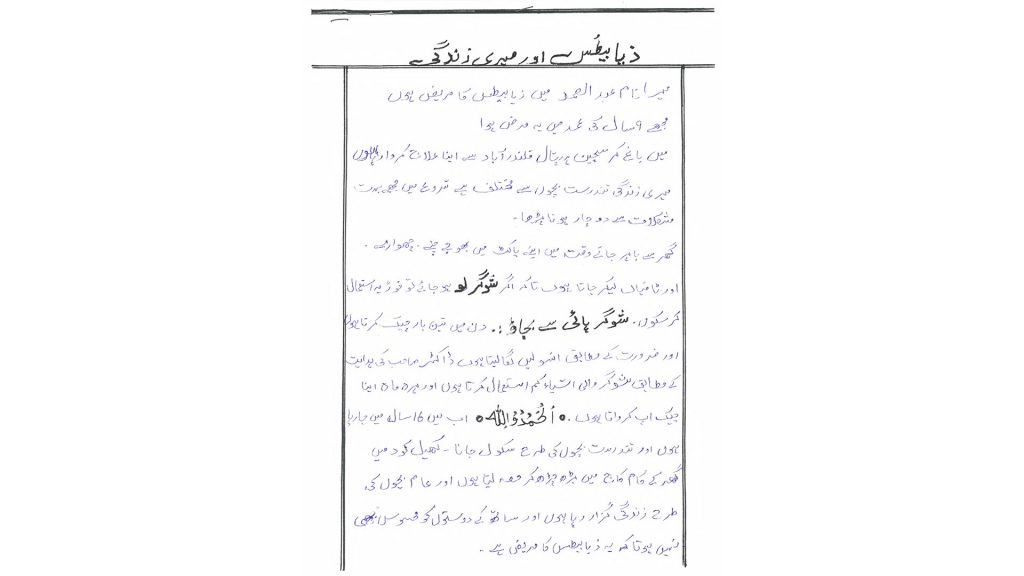 ذیابیطس اور میری زندگی
میرا نام عبدالصمد میں ذیابیطس کا مریض ہوں
مجھے 9 سال کی عمر میں یہ مرض ہوا
میں باغ کرسچین ہسپتال قلندرآباد سے اپنا علاج کروا رہا ہوں
میری زندگی تندرست بچوں سے مختلف ہے شروع میں مجھے بہت
مشکلات سے دوچار ہونا پڑھا۔
گھر سے باہر جاتے وقت میں اپنے پاکٹ میں بھوجے چنے۔ چھوارے۔
اور ٹافیاں لیکر جاتا ہوں تاکہ اگر شوگر لو ہو جائے تو فوڑیہ استعمال
کر سکوں۔ شوگر ہائی سے بچاؤ :. دن میں تین بار چیک کرتا ہوں
اور ضرورت کے مطابق انسولین لگا لیتا ہوں ڈاکٹر صاحب کی ہدایت
کے مطابق شوگر والی اشیاء کم استعمال کرتا ہوں اور ہر ماہ اپنا
چیک اپ کرواتا ہوں۔ الحمدُللہ اب میں 16 سال میں جا رہا
ہوں اور تندرست بچوں کی طرح سکول جانا۔ کھیل کود میں
گھر کے کام کاج میں بڑھ چڑھ کر حصہ لیتا ہوں اور عام بچوں کی
طرح زندگی گزار رہا ہوں اور ساتھ کے دوستوں کو محسوس بھی
نہیں ہوتا کہ یہ ذیابیطس کا مریض ہے۔